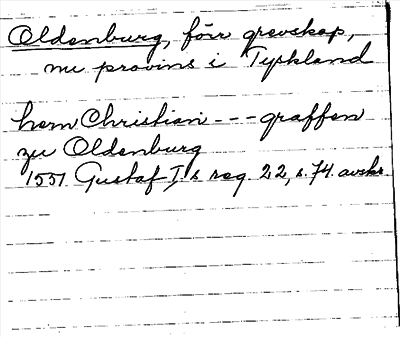 Oldenburg, förr grevskap,
nu provins i Tyskland
hern Christian --- graffen
zu Oldenburg
1551 Gustaf I:s reg. 22, s. 74. avskr.